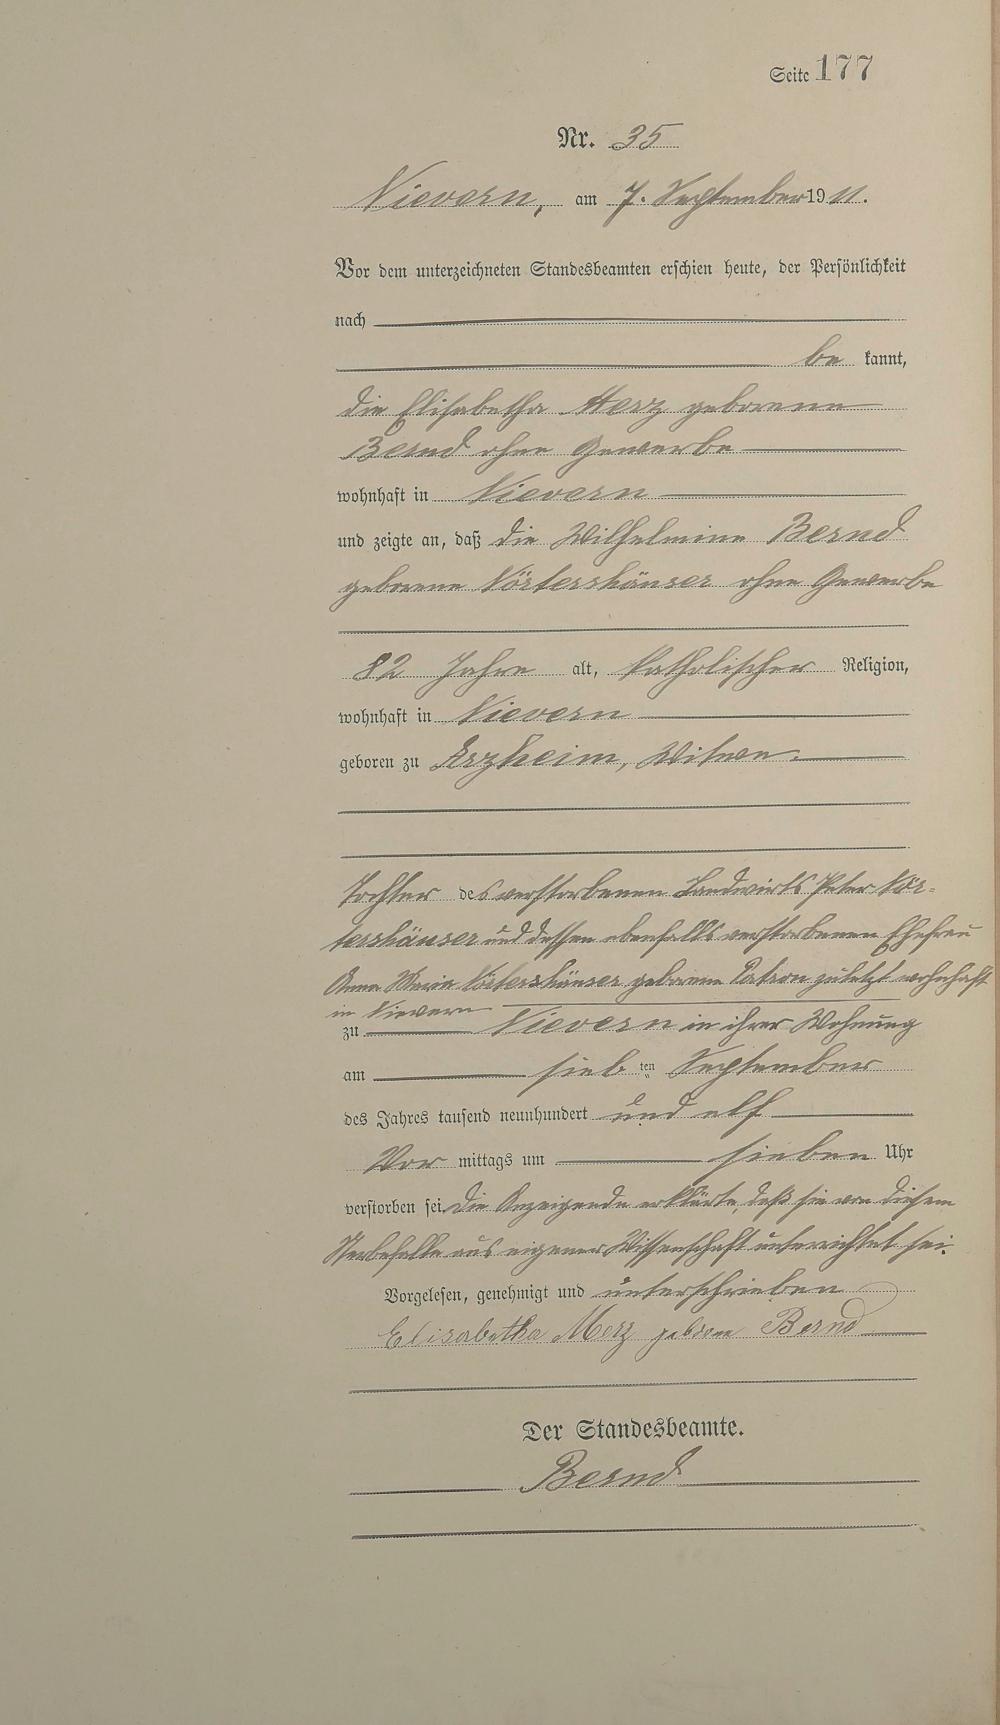 Seite 177
Nr. 35
Nievern, am 7. September 1911.
Vor dem unterzeichneten Standesbeamten erschien heute, der Persönlichkeit
nach
be kannt,
die Elisabetha Merz geborene
Bernd ohne Gewerbe
wohnhaft in Nievern
und zeigte an, daß die Wilhelmine Bernd
geborene Nörtershäuser ohne Gewerbe
82 Jahre alt, katholischer Religion,
wohnhaft in Nievern
geboren zu Arzheim, Witwe.
Tochter des verstorbenen Landwirts Peter Nör-
tershäuser und dessen ebenfalls verstorbenen Ehefrau
Anna Maria Nörtershäuser geborene Patron zuletzt wohnhaft
in Nievern
zu Nievern in ihrer Wohnung
am sieb ten September
des Jahres tausend neunhundert und elf
Vor mittags um sieben Uhr
verstorben sei. Die Anzeigende erklärte, daß sie von diesem
Sterbefalle aus eigener Wissenschaft unterrichtet sei.
Vorgelesen, genehmigt und unterschrieben
Elisabetha Merz geborene Bernd
Der Standesbeamte.
Bernd